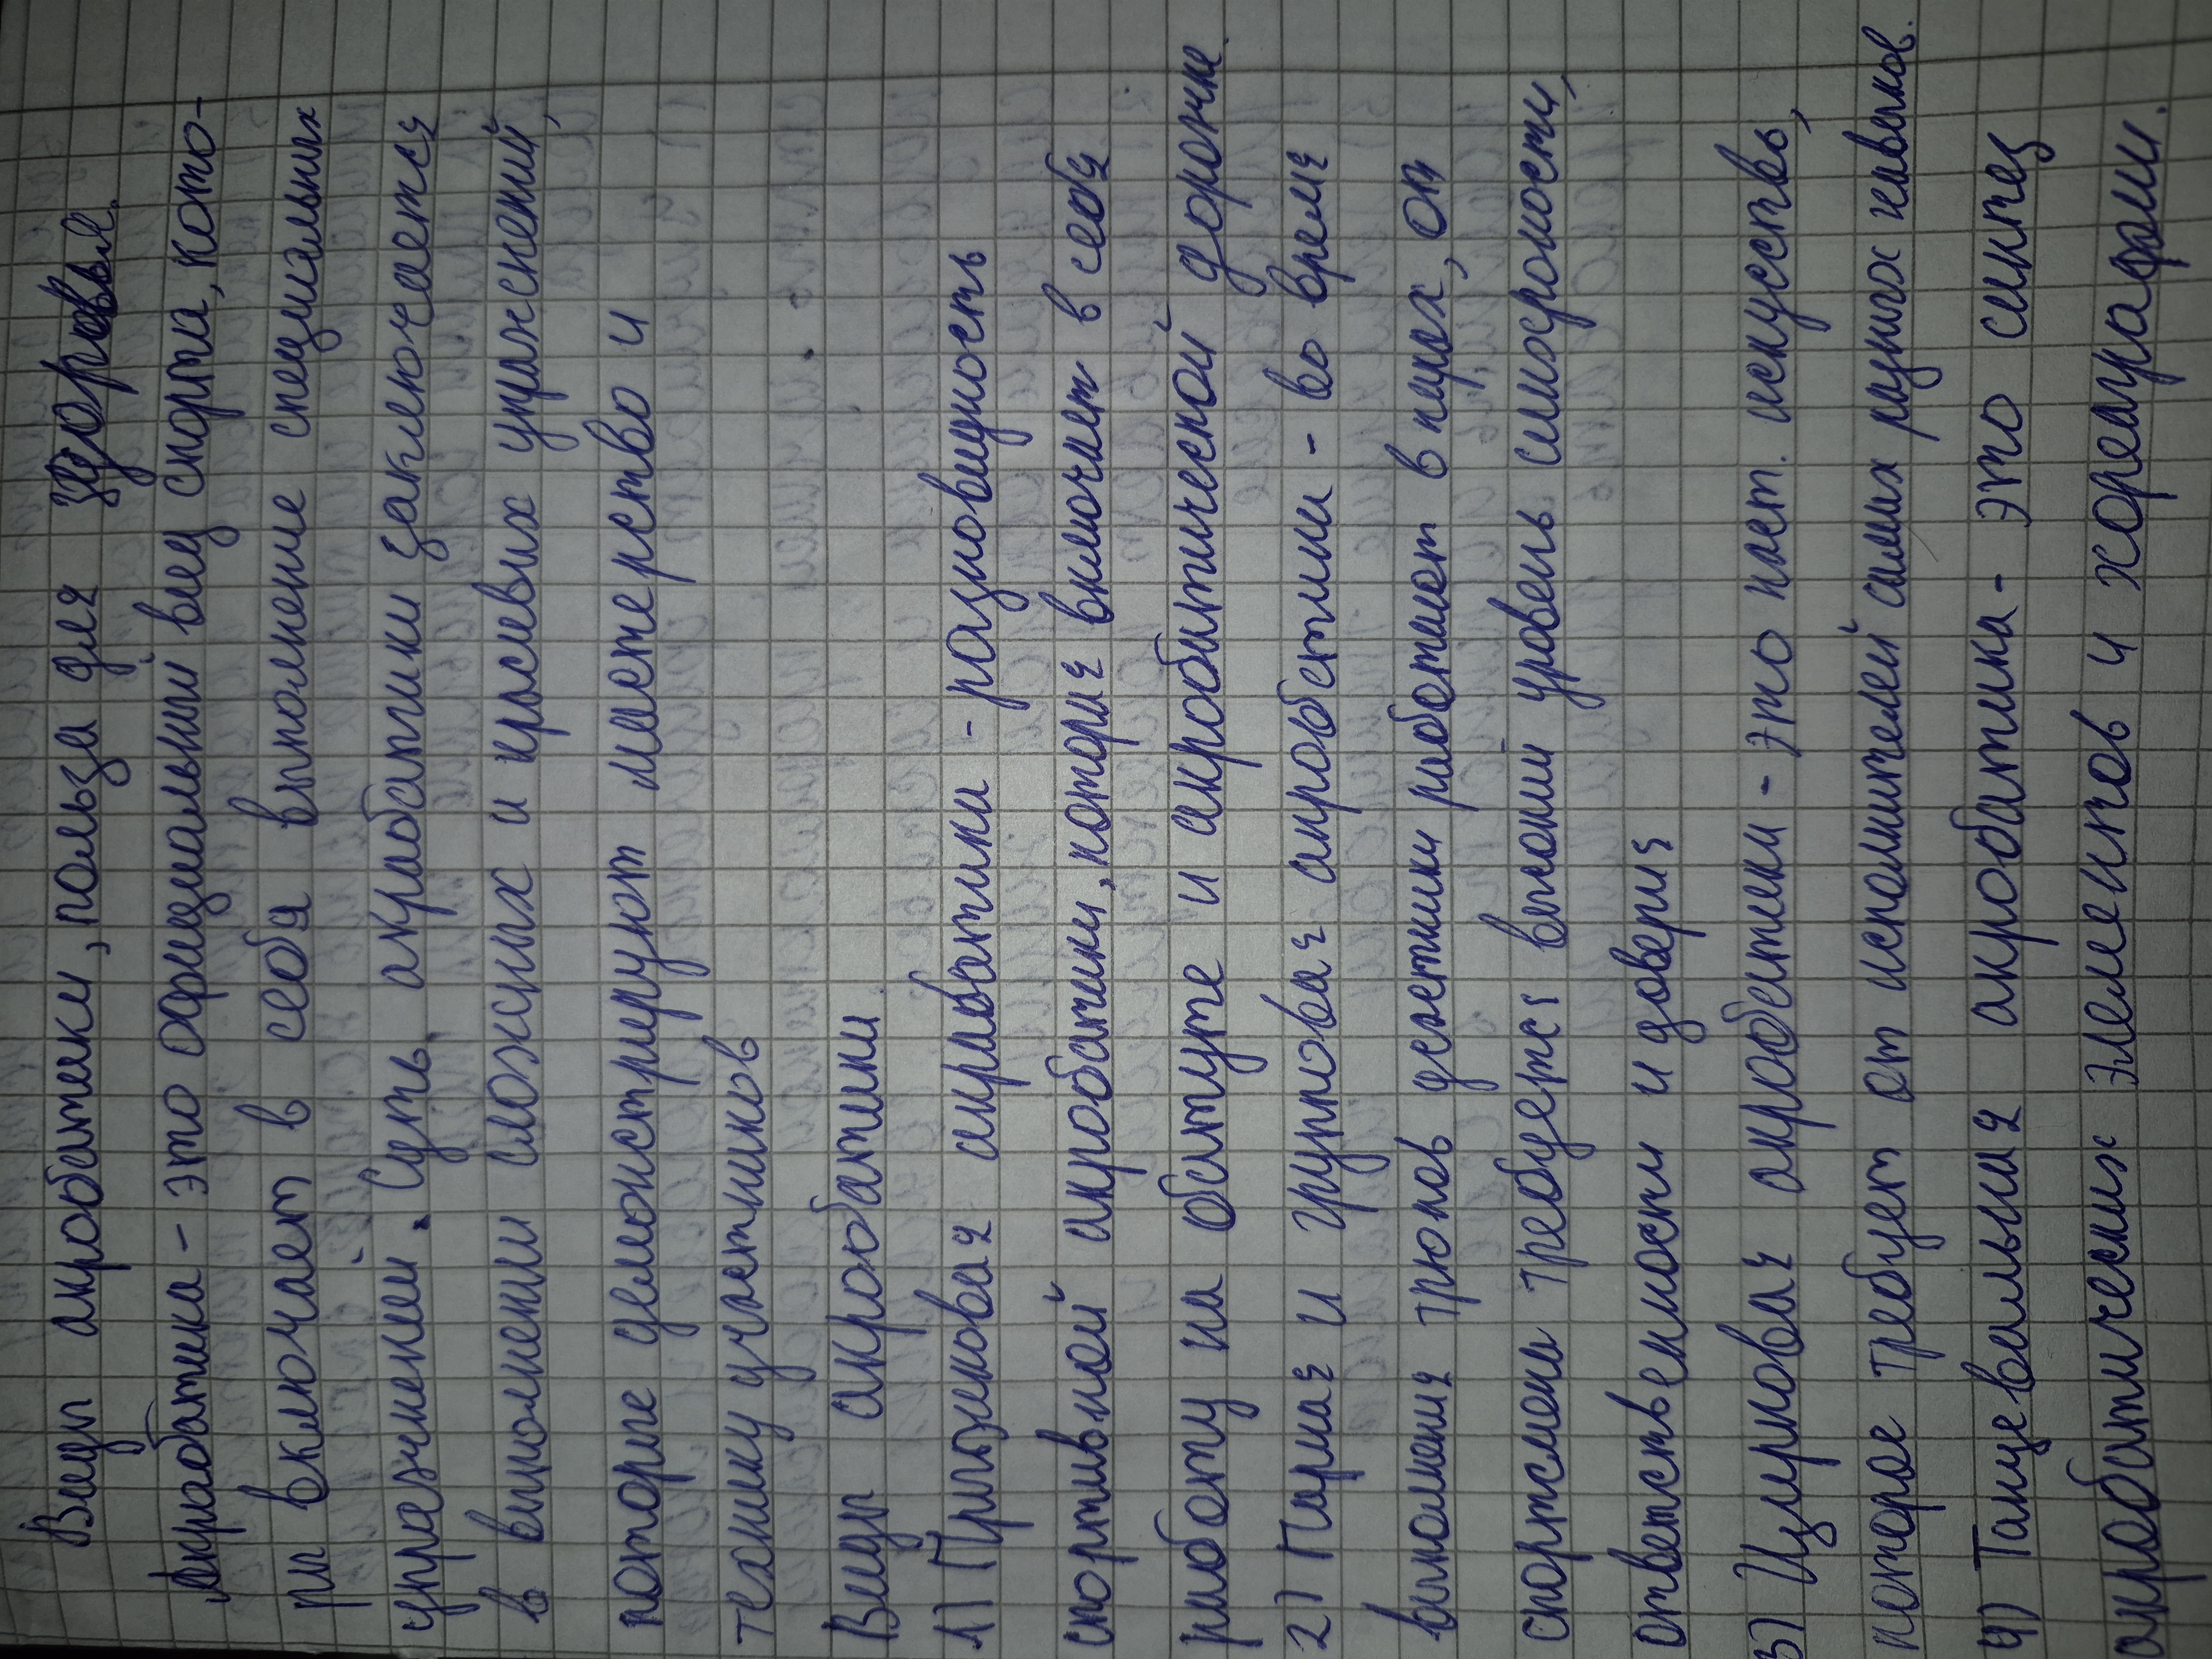 Виды акробатики, польза для здоровья.
Акробатика - это официальный вид спорта, кото-
ры включает в себя выполнение специальных
упражнений. Суть акробатики заключается
в выполнении сложных и красивых упражнений,
которые демонстрируют мастерство и
технику участников
Виды акробатики
1) Прыжковая акробатика - разновидность
спортивной акробатики, которая включает в себя
работу на батуте и акробатической дорожке.
2) Парная и групповая акробатика - во время
выполнения трюков участники работают в парах, от
спортсмена требуется высокий уровень синхронности,
ответственности и доверия
3) Цирковая акробатика - это наст. искусство,
которое требует от исполнителей самых разных навыков.
4) Танцевальная акробатика - это синтез
акробатических элементов и хореографии.